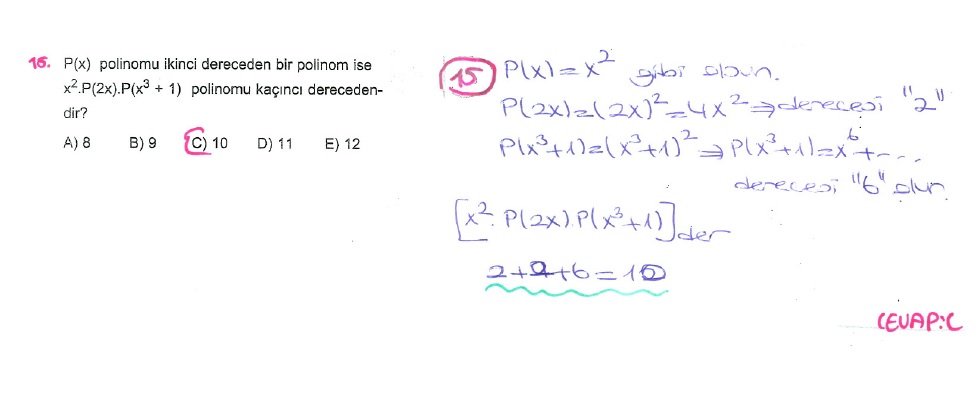 15. P(x) polinomu ikinci dereceden bir polinom ise
x².P(2x).P(x³ + 1) polinomu kaçıncı dereceden-
dir?
A) 8 B) 9 C) 10 D) 11 E) 12
15 P(x)=x² gibi olsun.
P(2x)=(2x)²=4x²⇒derecesi "2"
P(x³+1)=(x³+1)²⇒P(x³+1)=x⁶+---
derecesi "6" olur.
[x².P(2x).P(x³+1)]der
2+2+6=10
CEVAP:C